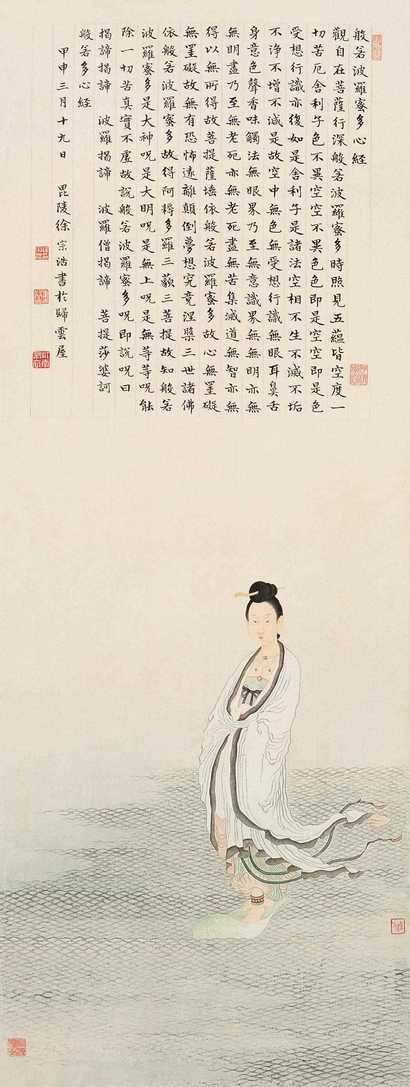 般若波羅蜜多心經
觀自在菩薩行深般若波羅蜜多時照見五蘊皆空度一
切苦厄舍利子色不異空空不異色色即是空空即是色
受想行識亦復如是舍利子是諸法空相不生不滅不垢
不淨不增不減是故空中無色無受想行識無眼耳鼻舌
身意色聲香味觸法無眼界乃至無意識界無無明亦無
無明盡乃至無老死亦無老死盡無苦集滅道無智亦無
得以無所得故菩提薩埵依般若波羅蜜多故心無罣礙
無罣礙故無有恐怖遠離顛倒夢想究竟涅槃三世諸佛
依般若波羅蜜多故得阿耨多羅三藐三菩提故知般若
波羅蜜多是大神咒是大明咒是無上咒是無等等咒能
除一切苦真實不虛故說般若波羅蜜多咒即說咒曰
揭諦揭諦 波羅揭諦 波羅僧揭諦 菩提莎婆訶
般若多心經
甲申三月十九日 毘陵徐宗浩書於歸雲屋